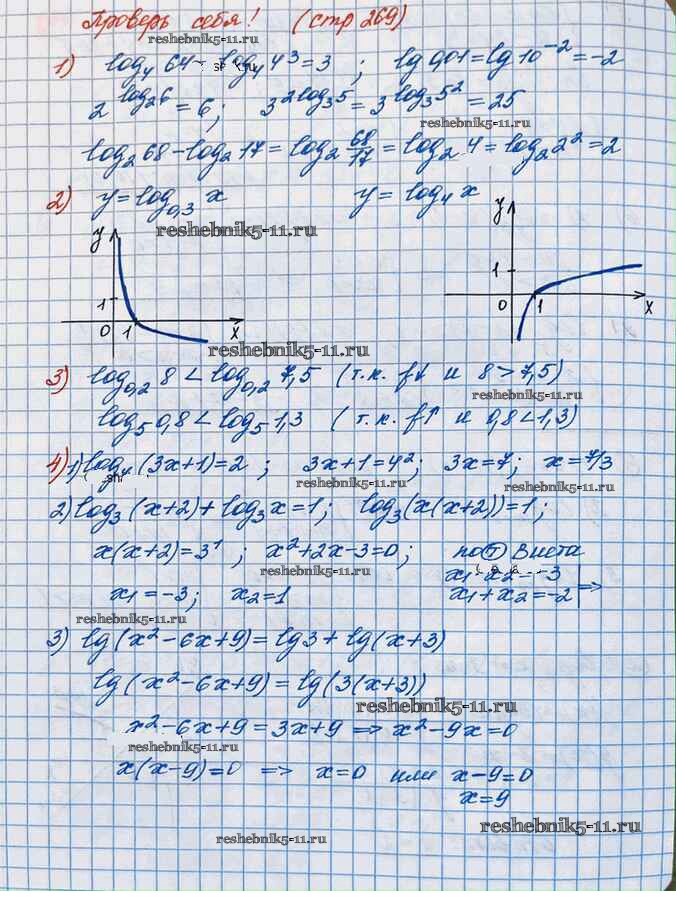 Проверь себя! (стр 269)
reshebnik5-11.ru
1) log₄ 64 = log₄ 4³ = 3 ; lg 0,01 = lg 10⁻² = -2
2^(log₂6) = 6; 3^(2log₃5) = 3^(log₃5²) = 25
reshebnik5-11.ru
log₂ 68 - log₂ 17 = log₂ 68/17 = log₂ 4 = log₂ 2² = 2
2) y = log₀,₃ x y = log₄ x
reshebnik5-11.ru
y y
1 1
0 1 x 0 1 x
reshebnik5-11.ru
3) log₀,₂ 8 < log₀,₂ 7,5 (т.к. f↓ и 8 > 7,5)
reshebnik5-11.ru
log₅ 0,8 < log₅ 1,3 (т.к. f↑ и 0,8 < 1,3)
4) 1) log₄ (3x+1) = 2 ; 3x+1 = 4²; 3x = 7; x = 7/3
reshebnik5-11.ru reshebnik5-11.ru
2) log₃ (x+2) + log₃ x = 1; log₃ (x(x+2)) = 1;
x(x+2) = 3¹ ; x²+2x-3 = 0; по Т Виета
reshebnik5-11.ru x₁·x₂ = -3
x₁ = -3; x₂ = 1 x₁+x₂ = -2 ⇒
reshebnik5-11.ru
3) lg (x² - 6x + 9) = lg 3 + lg (x+3)
lg (x² - 6x + 9) = lg (3(x+3))
reshebnik5-11.ru
x² - 6x + 9 = 3x + 9 ⇒ x² - 9x = 0
reshebnik5-11.ru
x(x-9) = 0 ⇒ x = 0 или x - 9 = 0
x = 9
reshebnik5-11.ru
reshebnik5-11.ru